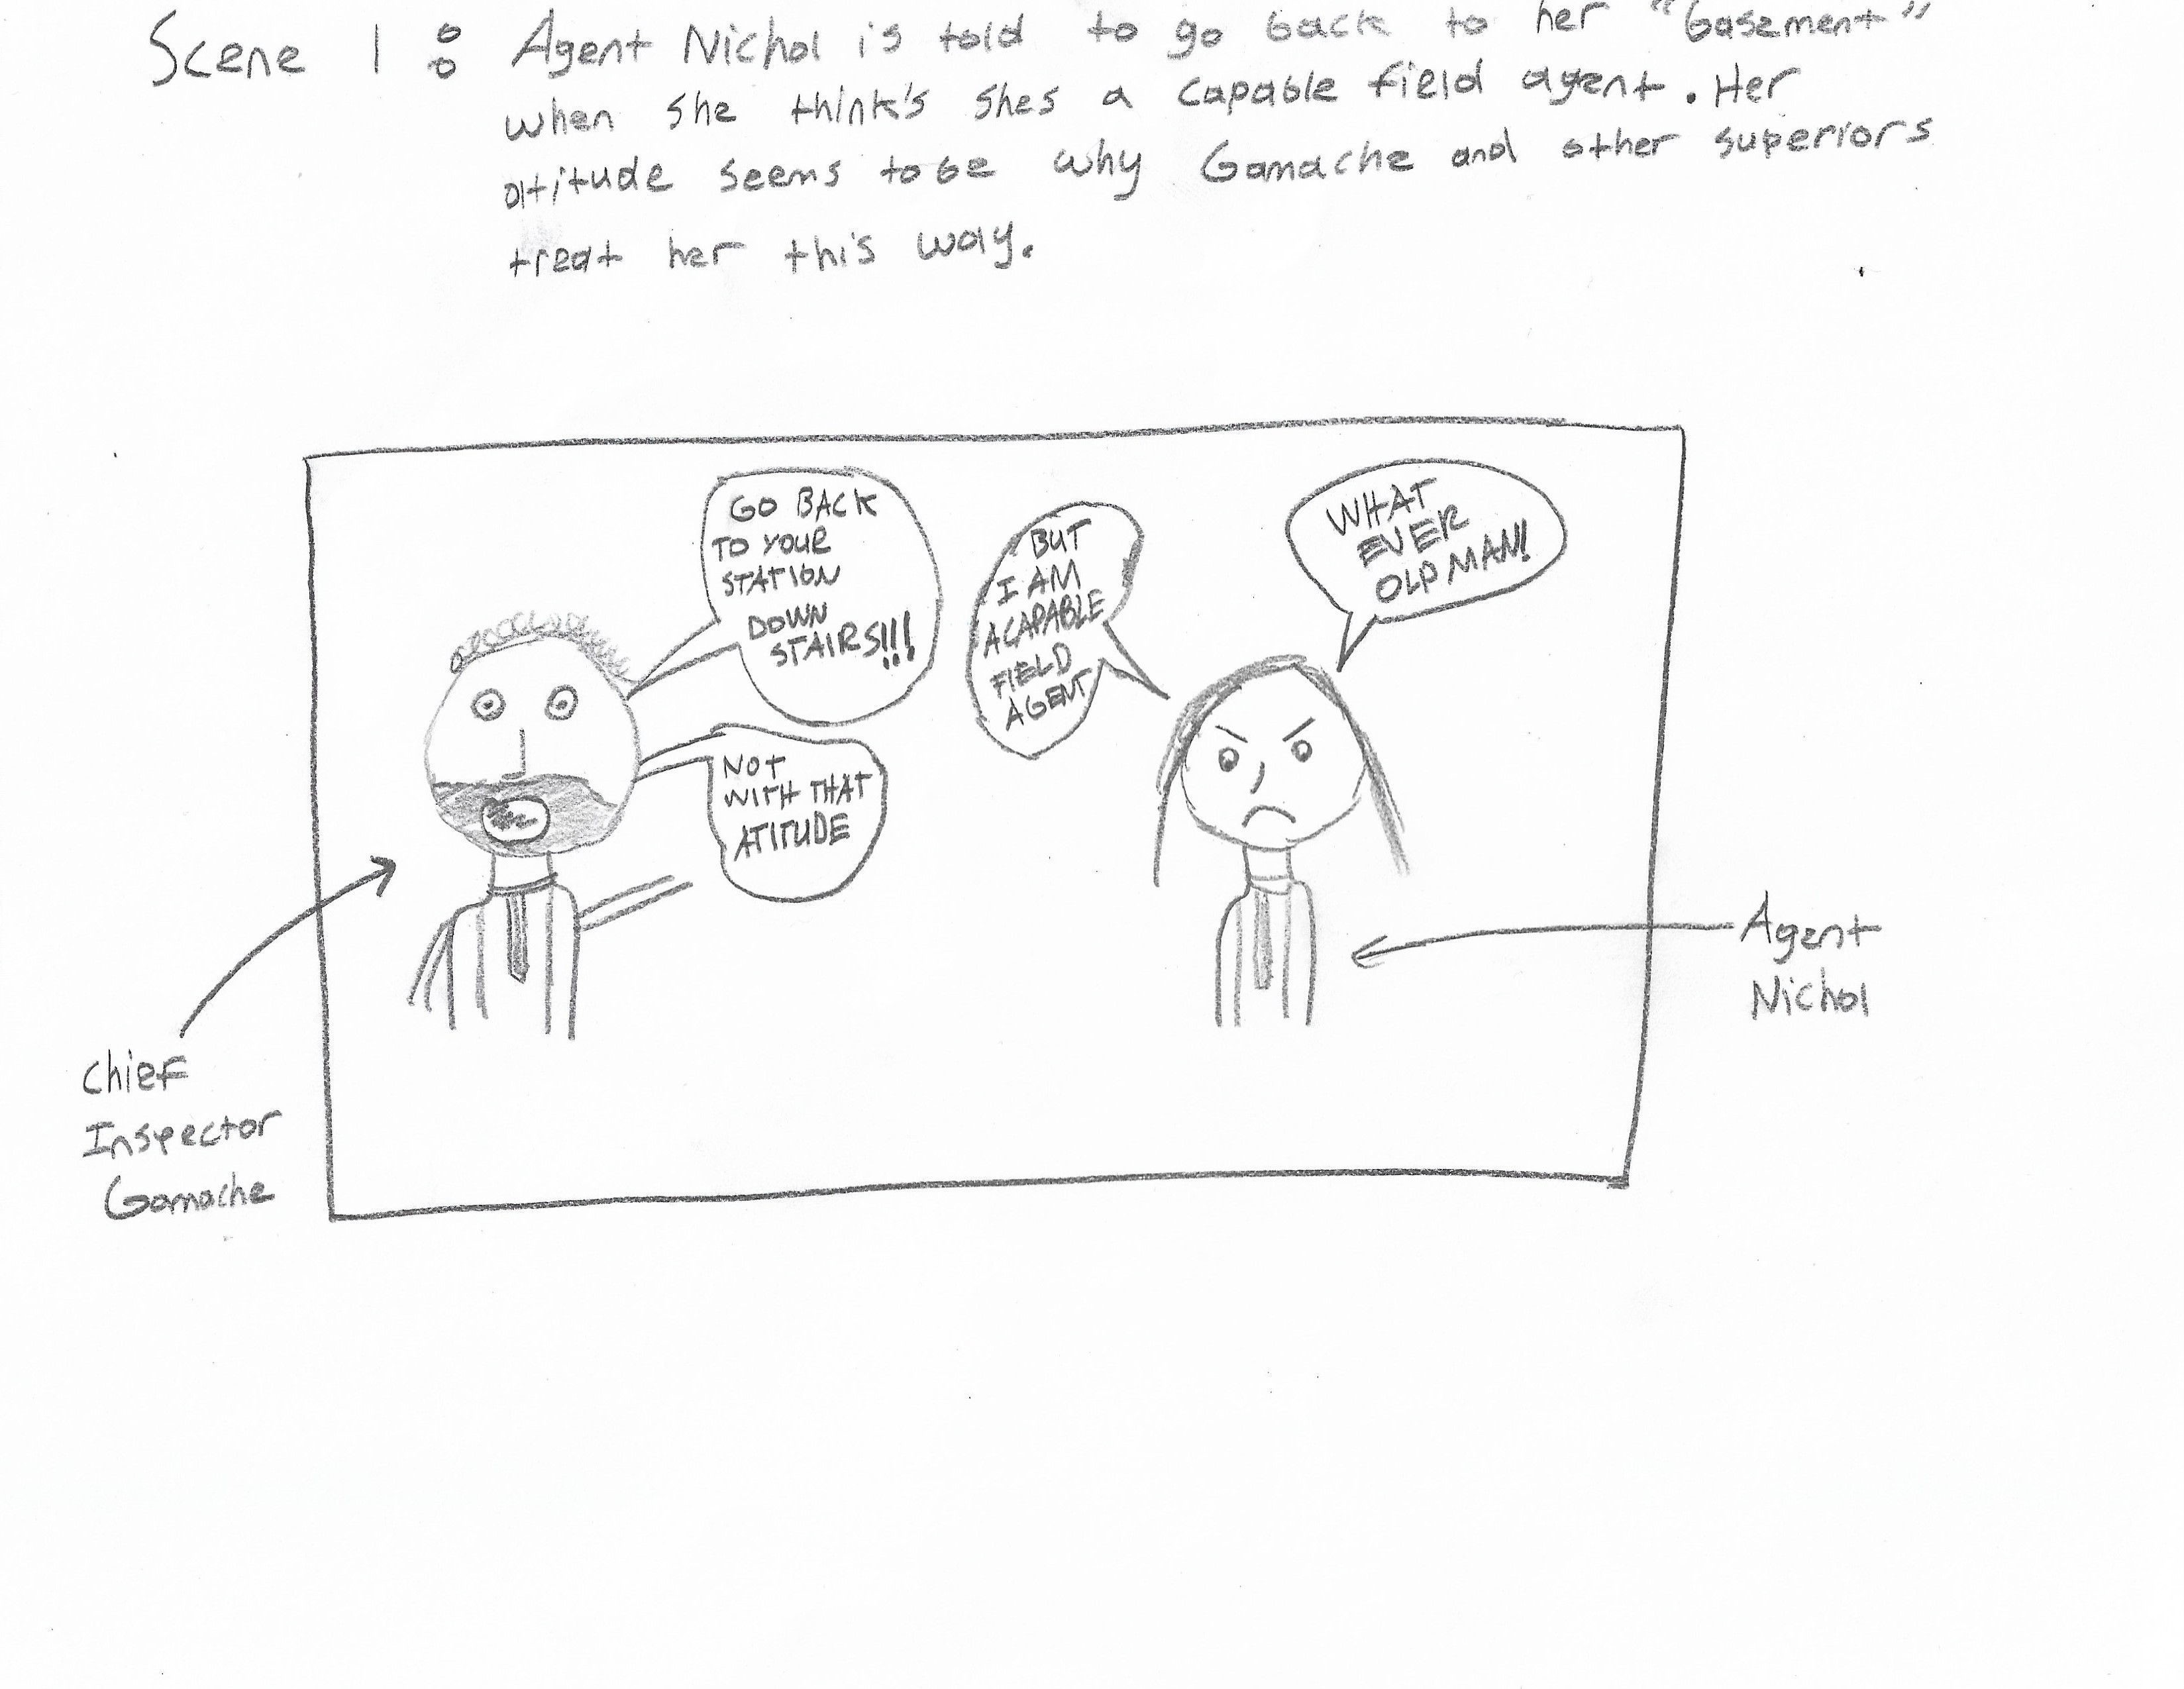 Scene 1: Agent Nichol is told to go back to her "basement"
when she think's shes a capable field agent. Her
attitude seems to be why Gamache and other superiors
treat her this way.
GO BACK
TO YOUR
STATION
DOWN
STAIRS!!!
BUT
I AM
A CAPABLE
FIELD
AGENT
WHAT
EVER
OLD MAN!
NOT
WITH THAT
ATITUDE
Chief
Inspector
Gamache
Agent
Nichol